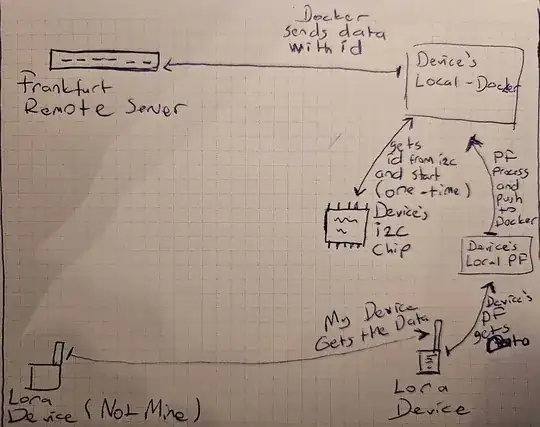 Docker
sends data
with id
Frankfurt
Remote Server
Device's
Local-Docker
gets
id from i2c
and start
(one-time)
Device's
i2c
Chip
PF
Process
and
push
to
Docker
Device's
Local PF
Device's
PF
gets
Data
My Device
Gets the Data
Lora
Device (Not Mine)
Lora
Device